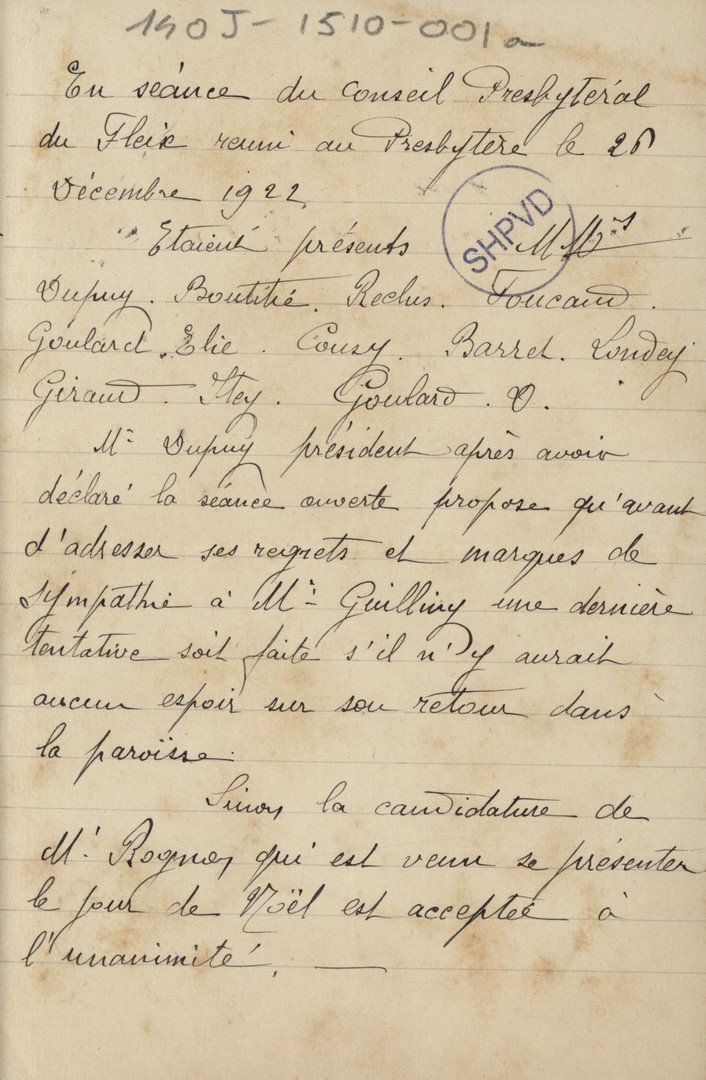 140J-1510-001a
En séance du Conseil Presbytéral
du Fleix reuni au Presbytère le 26
Décembre 1922.
SHPVD
Etaient présents MMrs
Dupuy. Boutitié. Reclus. Foucaud.
Goulard. Elie. Couzy. Barret. Londeij
Giraud. Itey. Goulard. O.
Mr Dupuy président après avoir
déclaré la séance ouverte propose qu'avant
d'adresser ses regrets et marques de
sympathie à Mr Guilliny une dernière
tentative soit faite s'il n'y aurait
aucun espoir sur son retour dans
la paroïsse.
Sinon la candidature de
Mr Rognon qui est venu se présenter
le jour de Noël est acceptée à
l'unanimité.